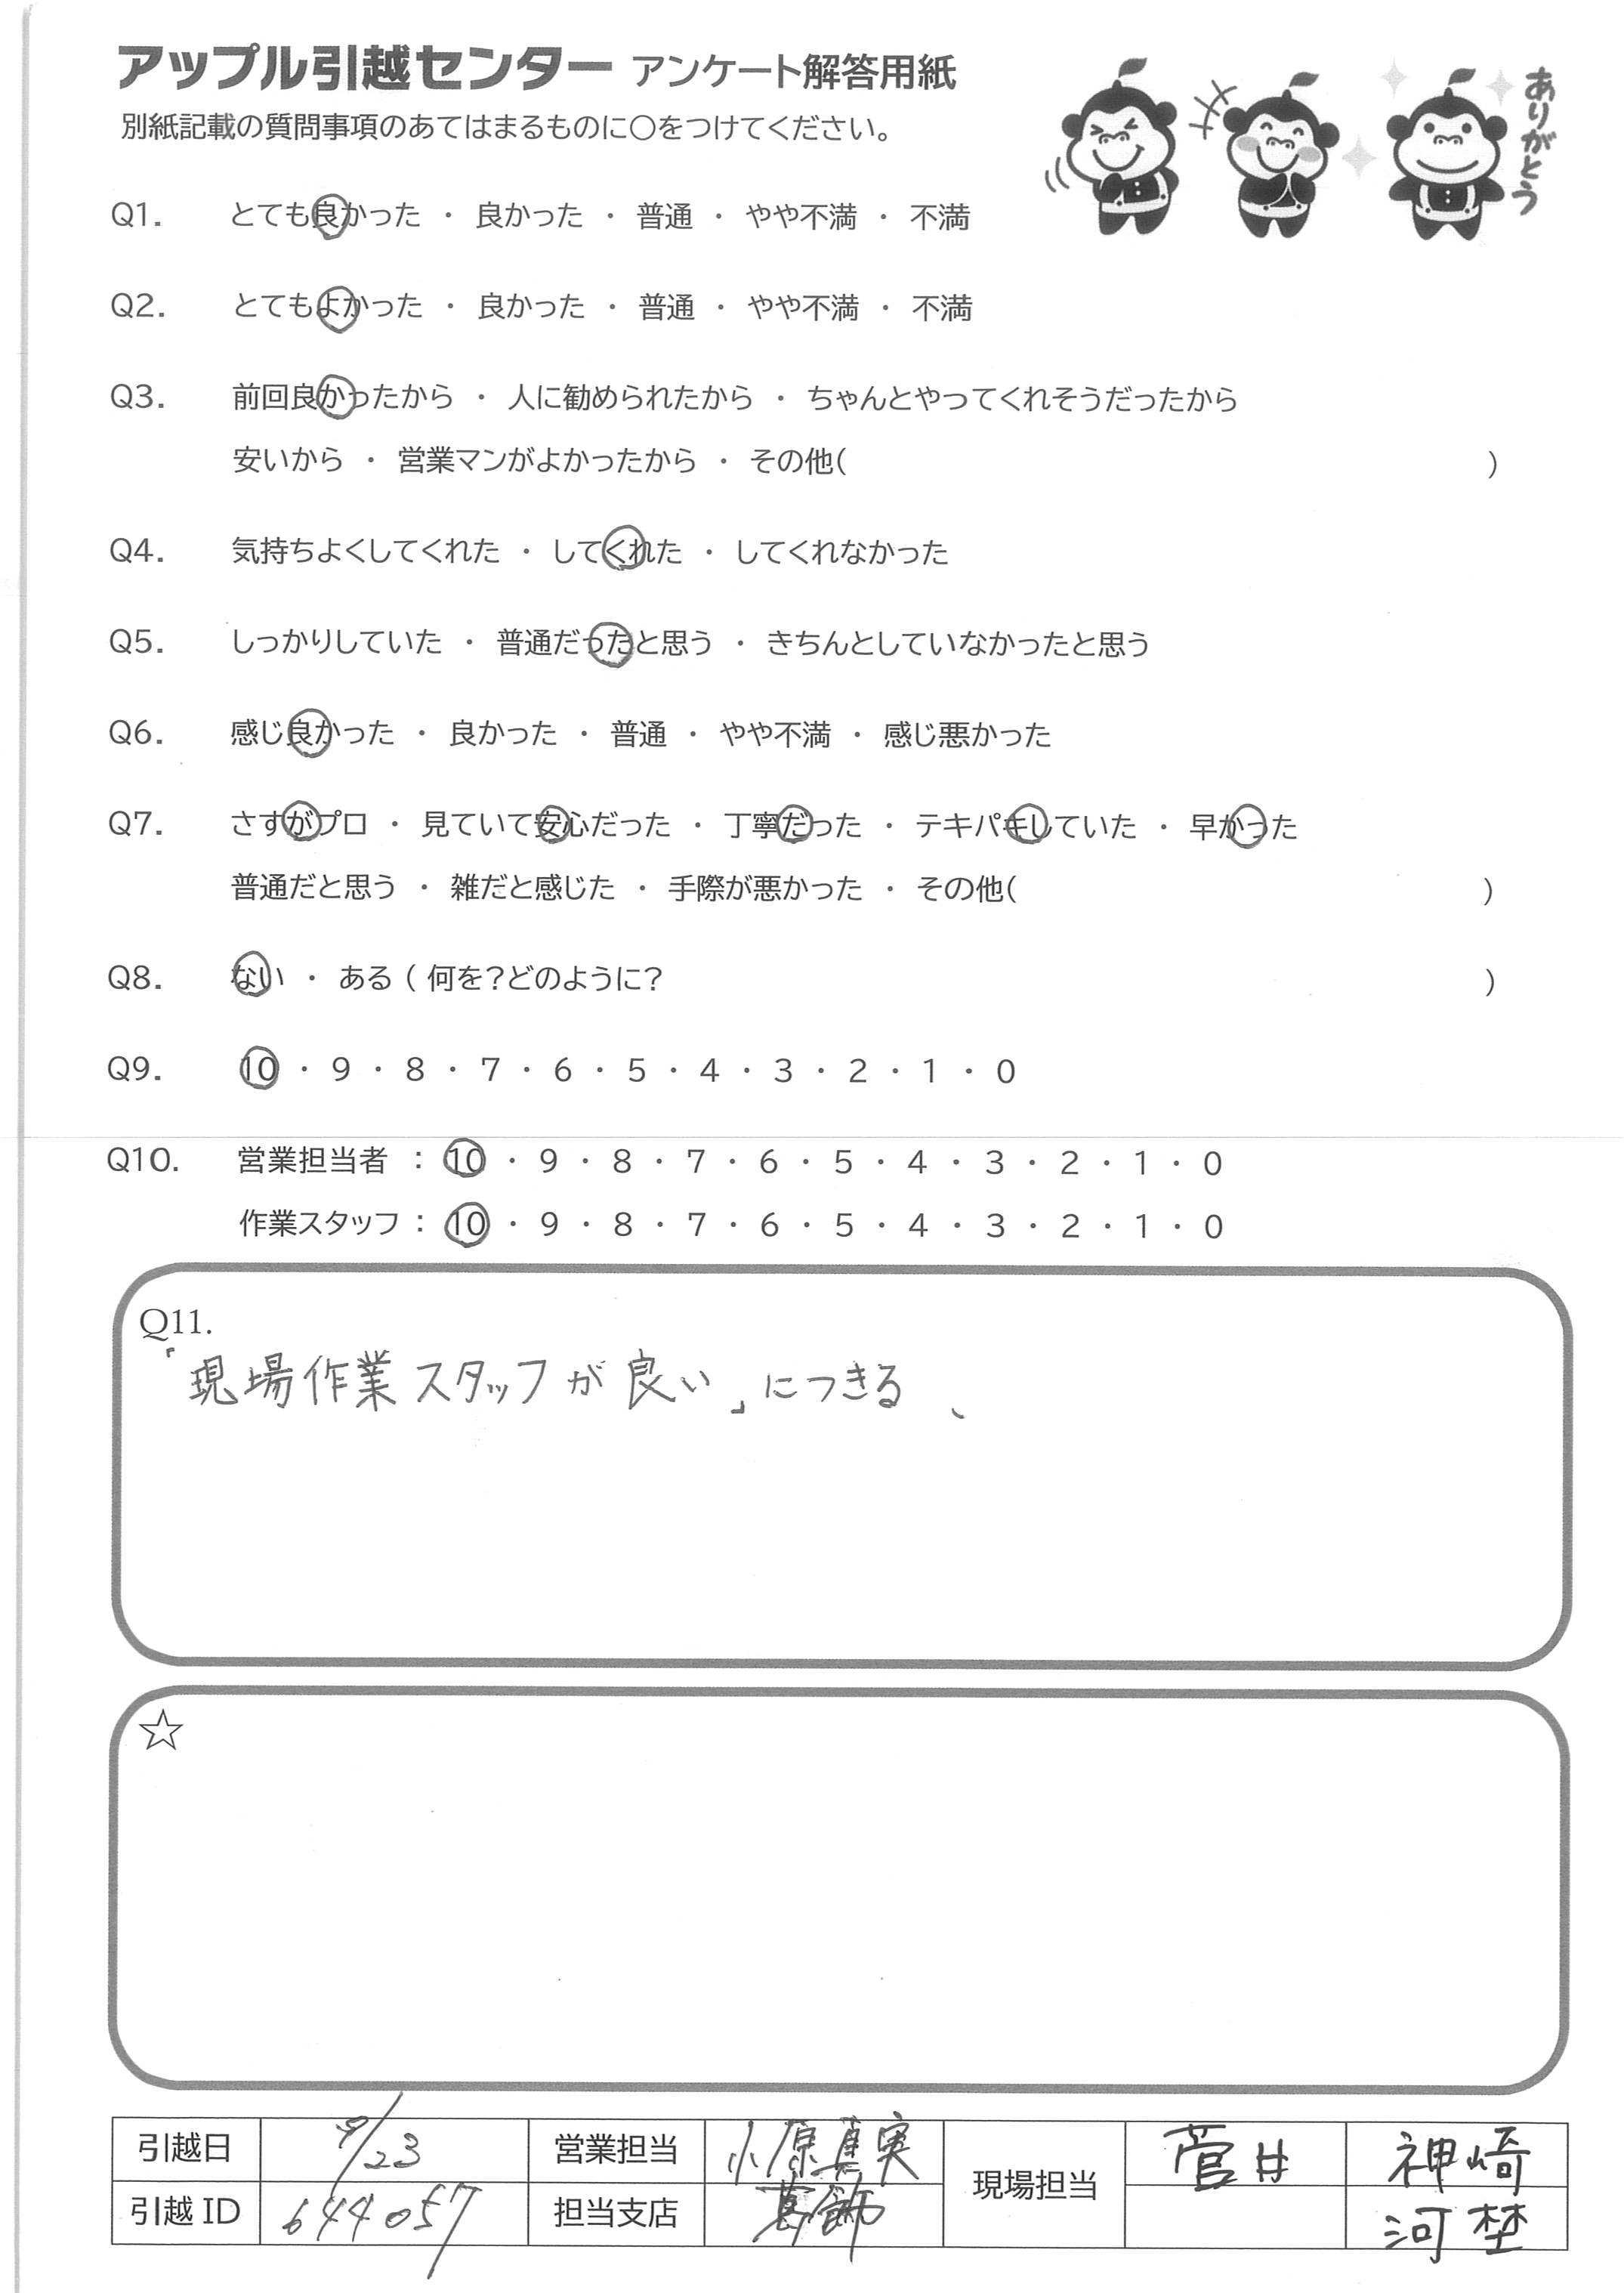 アップル引越センター アンケート解答用紙
別紙記載の質問事項のあてはまるものに○をつけてください。
ありがとう
Q1. とても良かった ・ 良かった ・ 普通 ・ やや不満 ・ 不満
Q2. とてもよかった ・ 良かった ・ 普通 ・ やや不満 ・ 不満
Q3. 前回良かったから ・ 人に勧められたから ・ ちゃんとやってくれそうだったから
安いから ・ 営業マンがよかったから ・ その他( )
Q4. 気持ちよくしてくれた ・ してくれた ・ してくれなかった
Q5. しっかりしていた ・ 普通だったと思う ・ きちんとしていなかったと思う
Q6. 感じ良かった ・ 良かった ・ 普通 ・ やや不満 ・ 感じ悪かった
Q7. さすがプロ ・ 見ていて安心だった ・ 丁寧だった ・ テキパキしていた ・ 早かった
普通だと思う ・ 雑だと感じた ・ 手際が悪かった ・ その他( )
Q8. ない ・ ある ( 何を?どのように? )
Q9. 10 ・ 9 ・ 8 ・ 7 ・ 6 ・ 5 ・ 4 ・ 3 ・ 2 ・ 1 ・ 0
Q10. 営業担当者 : 10 ・ 9 ・ 8 ・ 7 ・ 6 ・ 5 ・ 4 ・ 3 ・ 2 ・ 1 ・ 0
作業スタッフ : 10 ・ 9 ・ 8 ・ 7 ・ 6 ・ 5 ・ 4 ・ 3 ・ 2 ・ 1 ・ 0
Q11.
「現場作業スタッフが良い」につきる、
☆
引越日 9/23 営業担当 小原真実 現場担当 菅井 神崎
引越 ID 644057 担当支店 葛飾 河埜